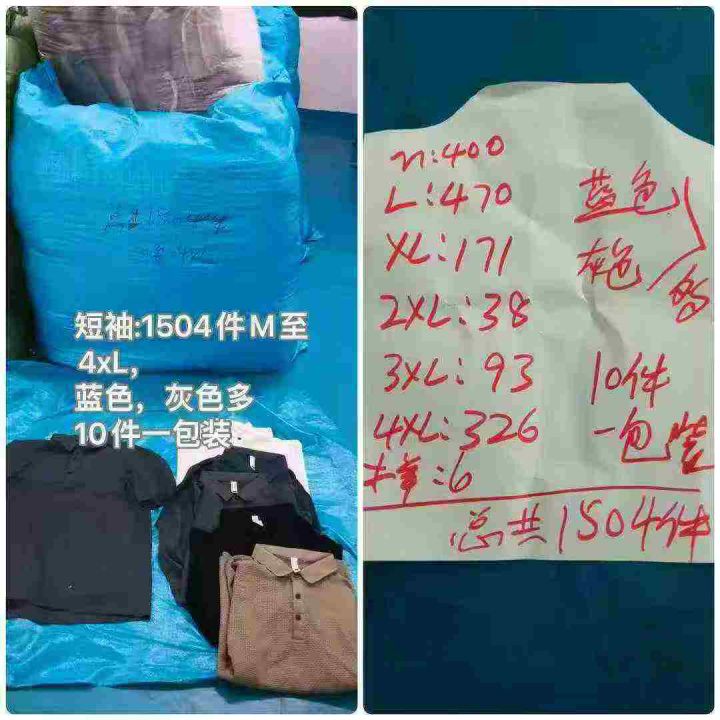 短袖:1504件M至
4xL,
蓝色，灰色多
10件一包装
n:400
L:470
XL:171
2XL:38
3XL:93
4XL:326
:6
蓝色
灰色
多
10件
一包装
总共1504件